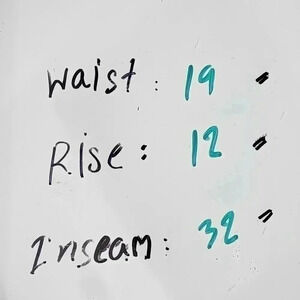 Waist: 19 "
Rise: 12 "
Inseam: 32 "